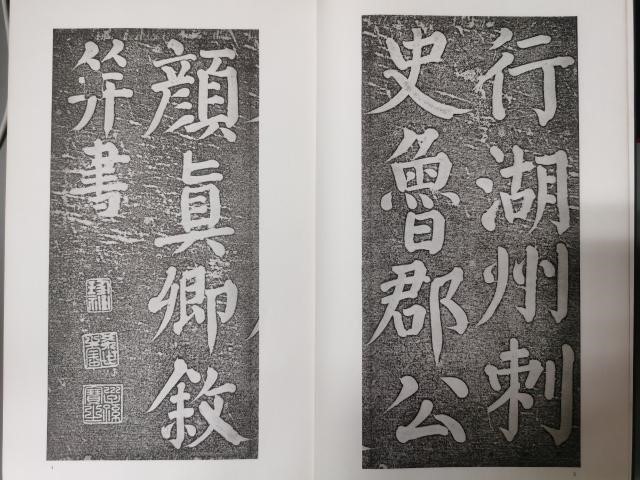 行湖州刺
史魯郡公
顔真卿敘
并書